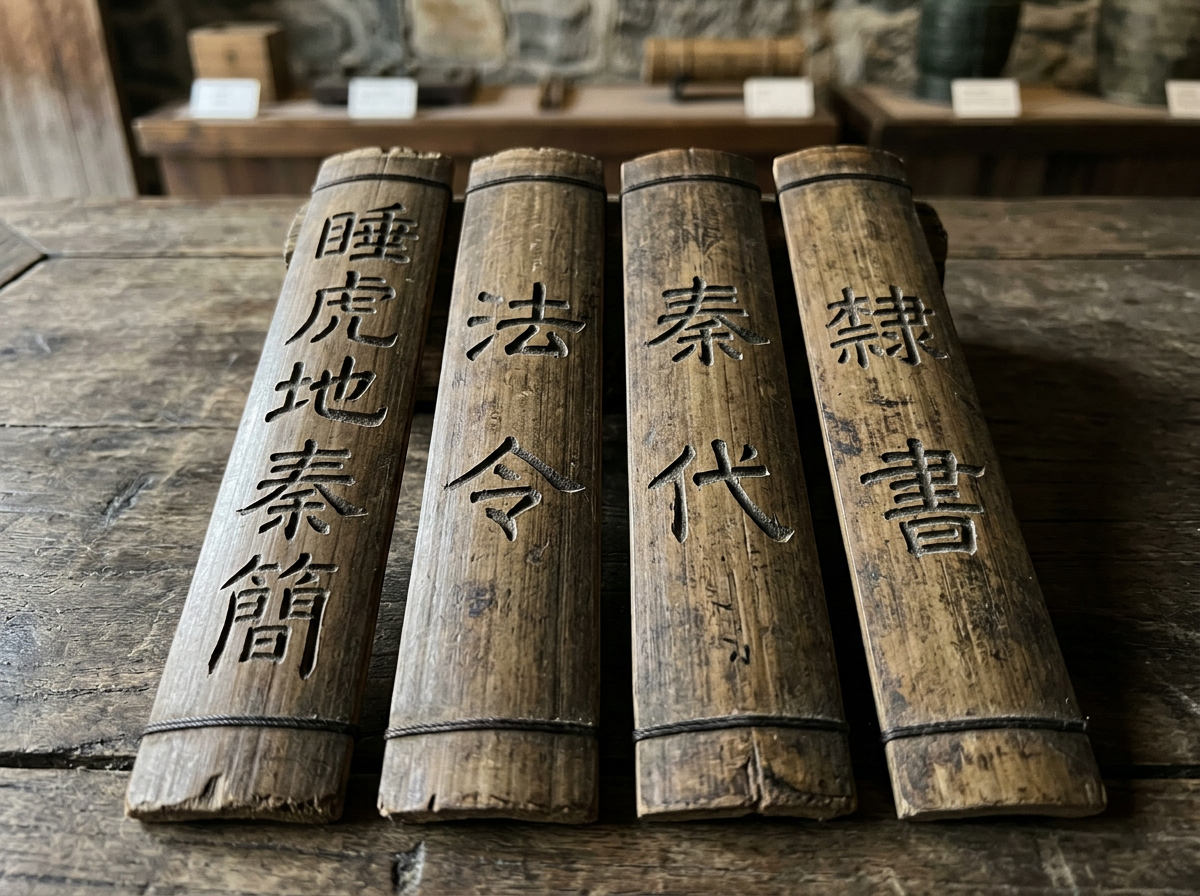 睡虎地秦簡
法令
秦代
隸書